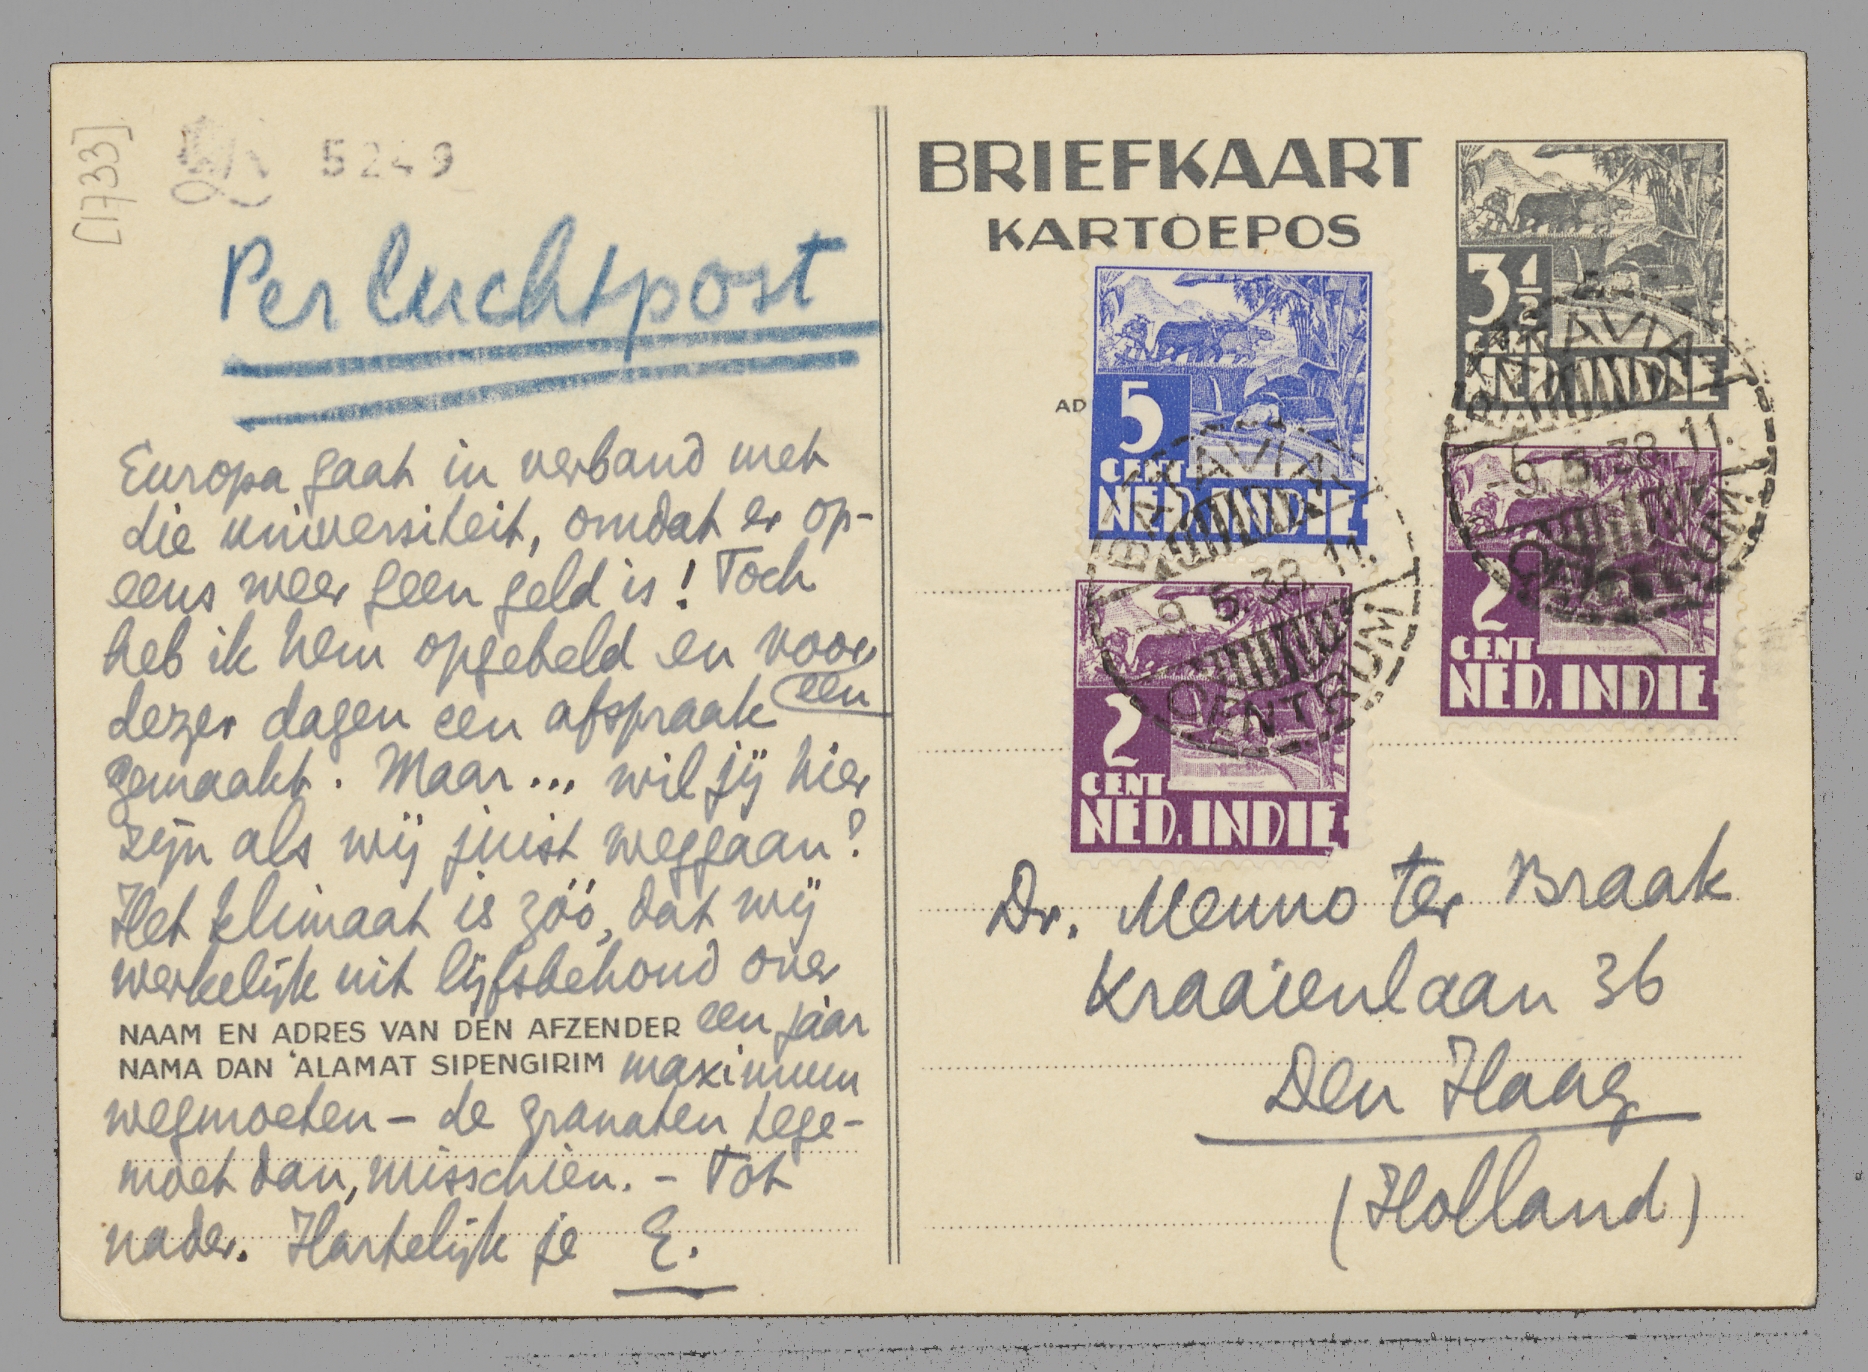 [1733]
5249
Per luchtpost
Europa gaat in verband met
die universiteit, omdat er op-
eens weer geen geld is! Toch
heb ik hem opgebeld en voor
dezer dagen een afspraak
een
gemaakt. Maar... wil jij hier
zijn als wij juist weggaan?
Het klimaat is zóó, dat wij
werkelijk uit lijfsbehoud over
NAAM EN ADRES VAN DEN AFZENDER een jaar
NAMA DAN 'ALAMAT SIPENGIRIM maximum
wegmoeten – de granaten tege-
moet dan, misschien. – Tot
nader. Hartelijk je E.
BRIEFKAART
KARTOEPOS
3½
CENT
NED. INDIE
AD
5
CENT
NED. INDIE
BATAVIA
-9.5.38.11.
CENTRUM
2
CENT
NED. INDIE
BATAVIA
-9.5.38.11.
CENTRUM
2
CENT
NED. INDIE
Dr. Menno ter Braak
Kraaienlaan 36
Den Haag
(Holland)